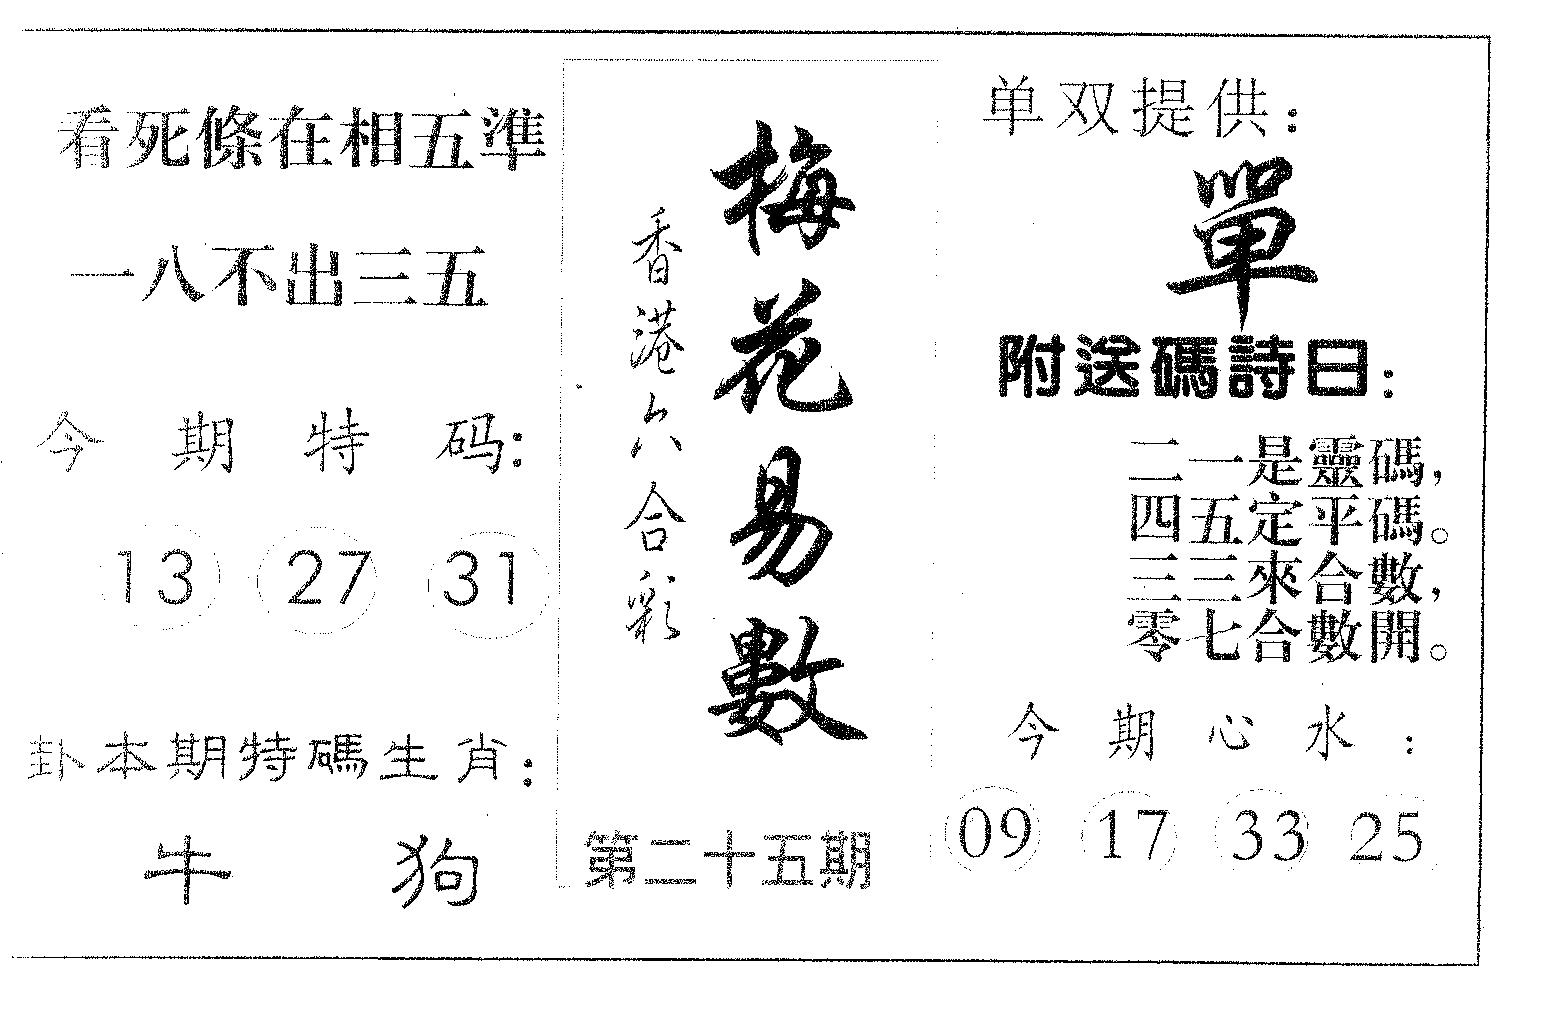 看死條在相五準
一八不出三五
今期特码:
13 27 31
卦本期特碼生肖:
牛 狗
梅花易數
香港六合彩
第二十五期
单双提供:
單
附送碼詩曰:
二一是靈碼,
四五定平碼。
三三來合數,
零七合數開。
今期心水:
09 17 33 25